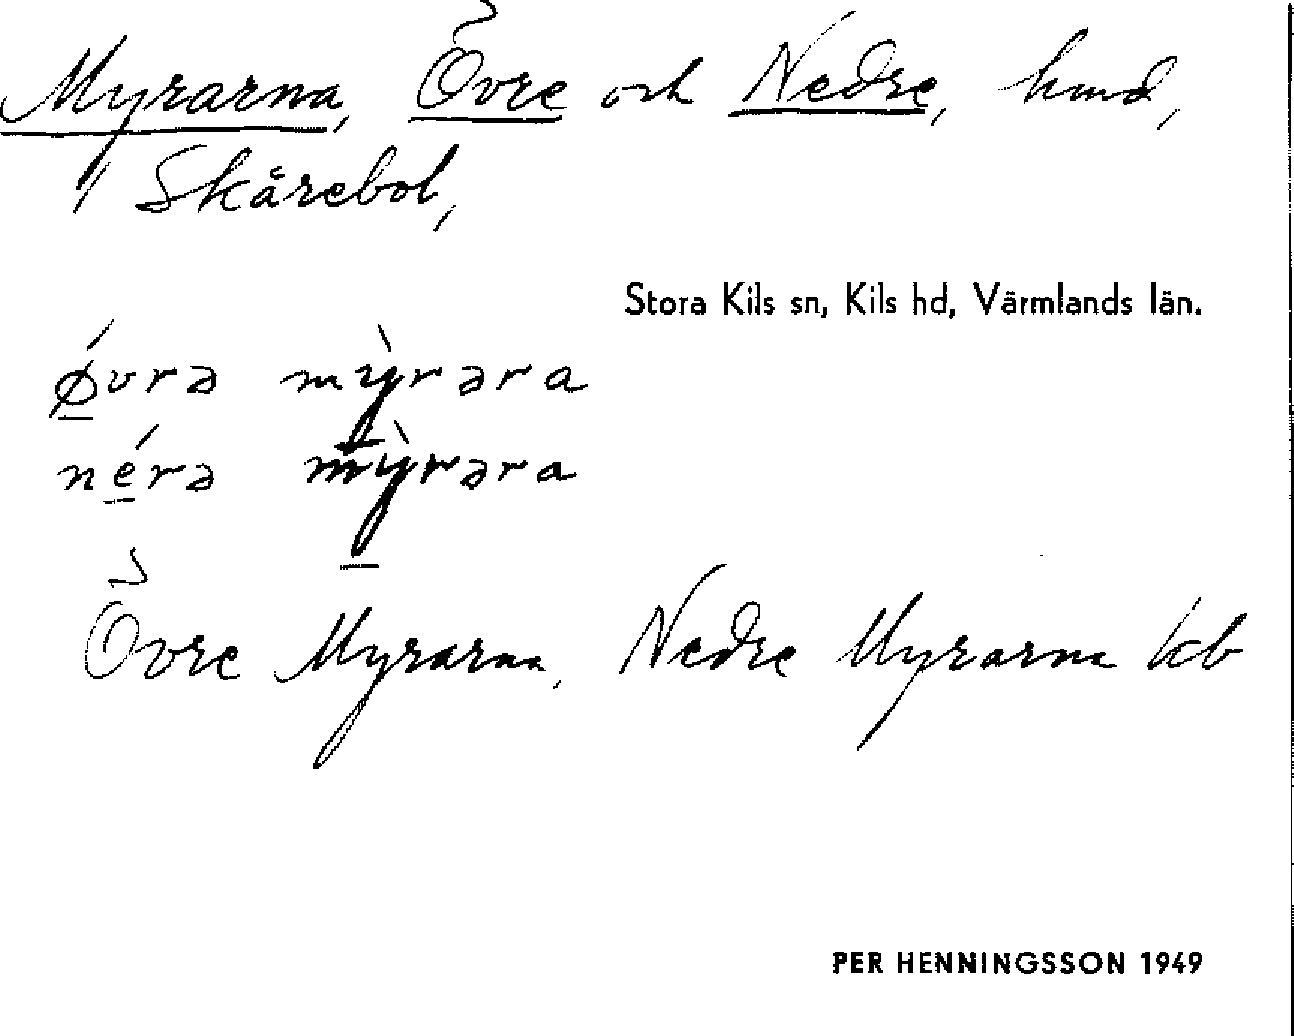 Myrarna, Övre och Nedre, hmd,
/ Skårebol,
Stora Kils sn, Kils hd, Värmlands län.
ǿvrə mỳrəra
nérə mỳrəra
Övre Myrarna, Nedre Myrarna kb
PER HENNINGSSON 1949